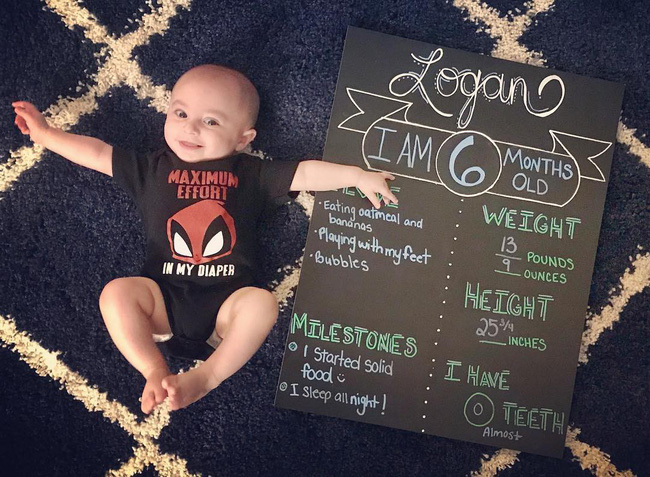 MAXIMUM
EFFORT
IN MY DIAPER
Logan
I AM 6 MONTHS
OLD
• Eating oatmeal and
bananas
• Playing with my feet
• Bubbles
MILESTONES
I started solid
food
I sleep all night!
WEIGHT
13 POUNDS
9 OUNCES
HEIGHT
25 3/4
INCHES
I HAVE
0 TEETH
Almost